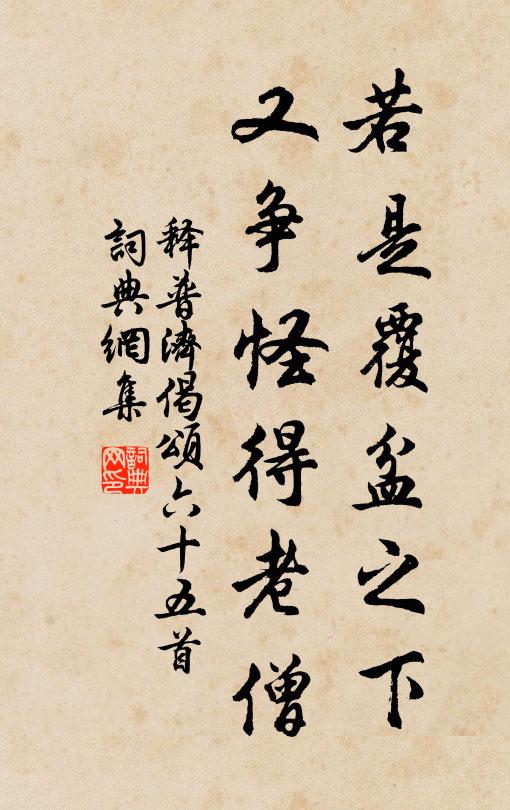 若是覆盆之下
又争怪得老僧
释普濟偈頌六十五首
詞典網集
詞典网印